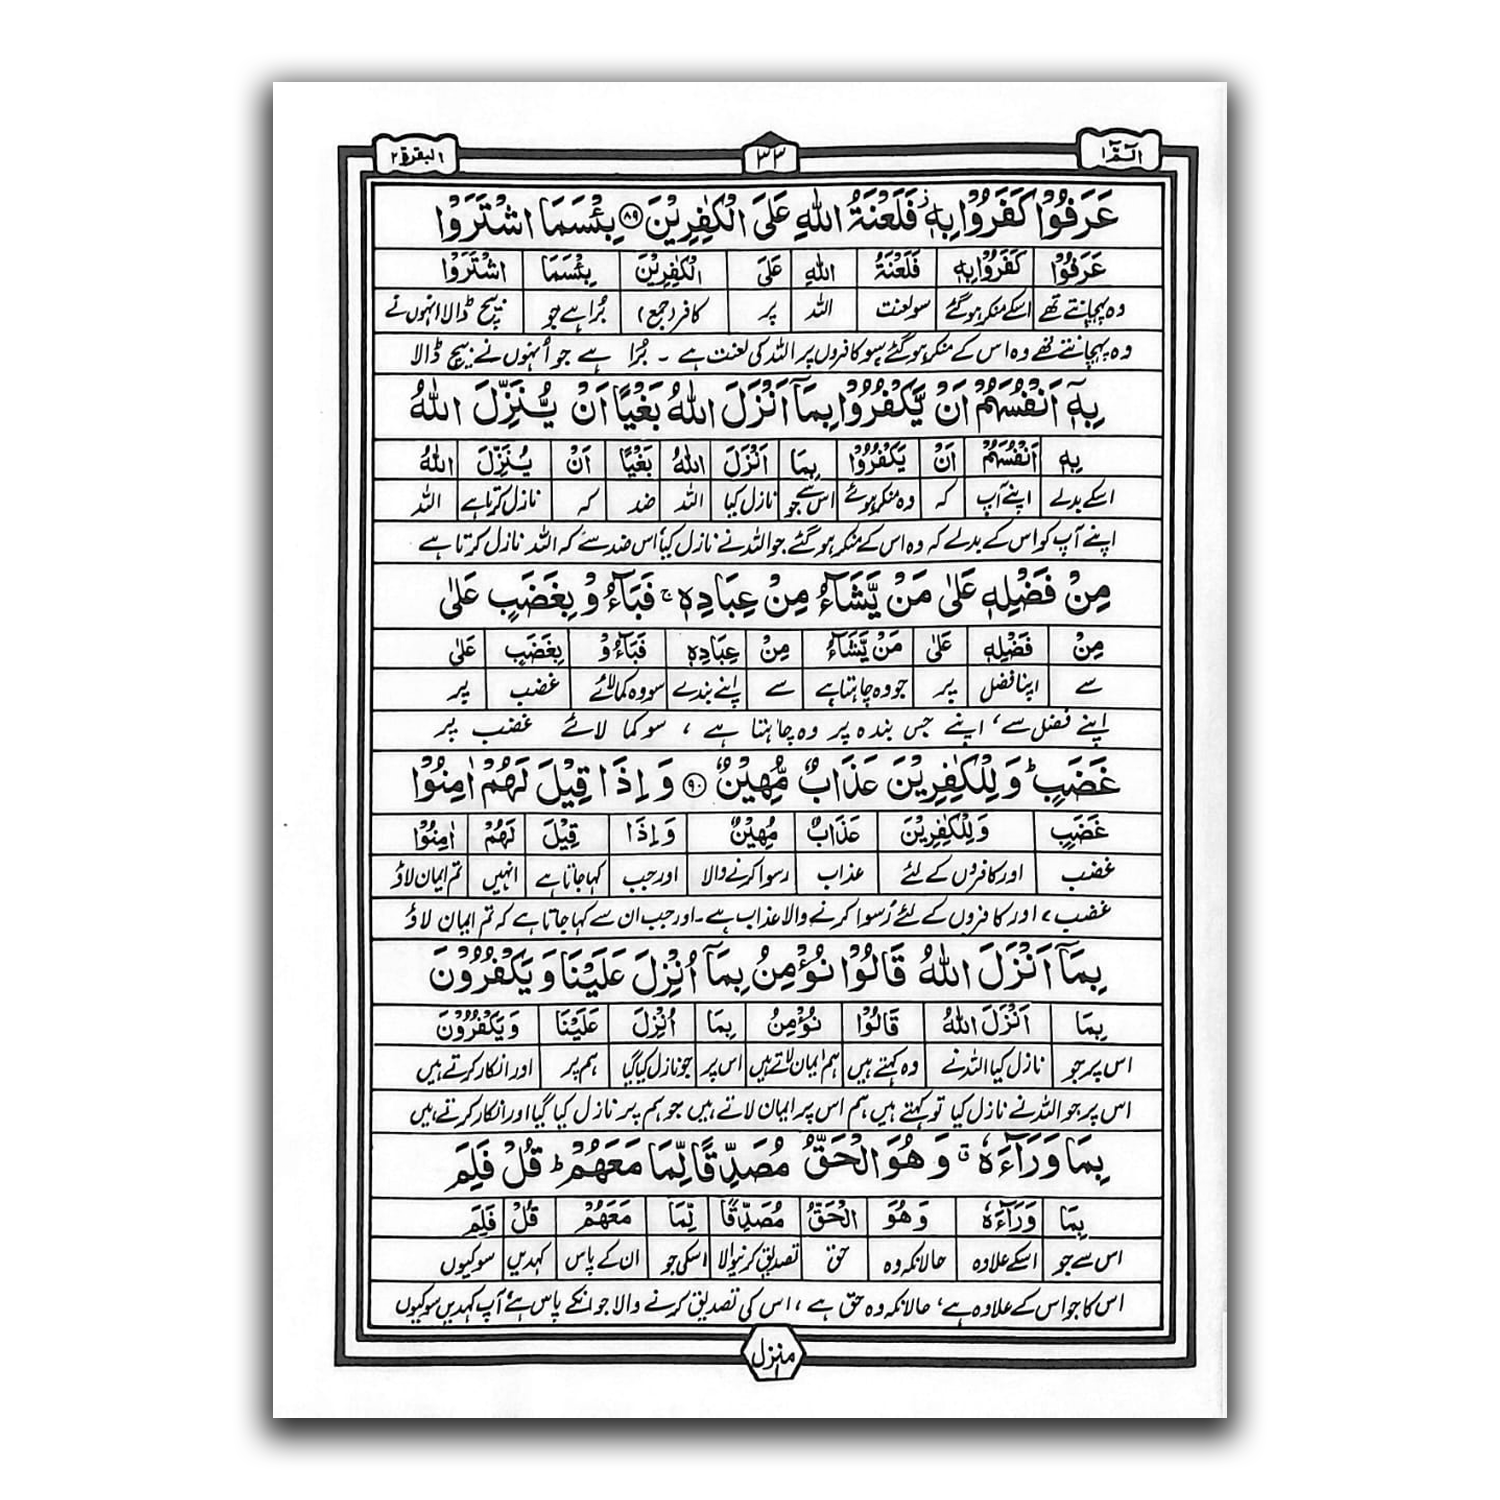 الٓمّٓ ١
٣٣
البقرة ٢
عَرَفُوۡا کَفَرُوۡا بِهٖ ؗ فَلَعۡنَةُ اللهِ عَلَی الۡکٰفِرِیۡنَ ﴿۸۹﴾ بِئۡسَمَا اشۡتَرَوۡا
عَرَفُوۡا کَفَرُوۡا بِهٖ فَلَعۡنَةُ اللهِ عَلَی الۡکٰفِرِیۡنَ بِئۡسَمَا اشۡتَرَوۡا
وہ پہچانتے تھے اسکے منکر ہوگئے سو لعنت اللہ پر کافر (جمع) بُرا ہے جو بیچ ڈالا انہوں نے
وہ پہچانتے تھے وہ اس کے منکر ہوگئے سو کافروں پر اللہ کی لعنت ہے ۔ بُرا ہے جو اُنہوں نے بیچ ڈالا
بِهٖۤ اَنۡفُسَهُمۡ اَنۡ یَّکۡفُرُوۡا بِمَاۤ اَنۡزَلَ اللهُ بَغۡیًا اَنۡ یُّنَزِّلَ اللهُ
بِهٖ اَنۡفُسَهُمۡ اَنۡ یَکۡفُرُوۡا بِمَا اَنۡزَلَ اللهُ بَغۡیًا اَنۡ یُنَزِّلَ اللهُ
اسکے بدلے اپنے آپ کہ وہ منکر ہوئے اس سے جو نازل کیا اللہ ضد کہ نازل کرتا ہے اللہ
اپنے آپ کو اس کے بدلے کہ وہ اس کے منکر ہوگئے جو اللہ نے نازل کیا اس ضد سے کہ اللہ نازل کرتا ہے
مِنۡ فَضۡلِهٖ عَلٰی مَنۡ یَّشَآءُ مِنۡ عِبَادِهٖ ۚ فَبَآءُوۡ بِغَضَبٍ عَلٰی
مِنۡ فَضۡلِهٖ عَلٰی مَنۡ یَّشَآءُ مِنۡ عِبَادِهٖ فَبَآءُوۡ بِغَضَبٍ عَلٰی
سے اپنا فضل پر جو وہ چاہتا ہے سے اپنے بندے سو وہ کما لائے غضب پر
اپنے فضل سے، اپنے جس بندہ پر وہ چاہتا ہے ، سو کما لائے غضب پر
غَضَبٍ ؕ وَلِلۡکٰفِرِیۡنَ عَذَابٌ مُّهِیۡنٌ ﴿۹۰﴾ وَ اِذَا قِیۡلَ لَهُمۡ اٰمِنُوۡا
غَضَبٍ وَلِلۡکٰفِرِیۡنَ عَذَابٌ مُهِیۡنٌ وَ اِذَا قِیۡلَ لَهُمۡ اٰمِنُوۡا
غضب اور کافروں کے لئے عذاب رسوا کرنے والا اور جب کہا جاتا ہے انہیں تم ایمان لاؤ
غضب، اور کافروں کے لئے رُسوا کرنے والا عذاب ہے ۔ اور جب ان سے کہا جاتا ہے کہ تم ایمان لاؤ
بِمَاۤ اَنۡزَلَ اللهُ قَالُوۡا نُؤۡمِنُ بِمَاۤ اُنۡزِلَ عَلَیۡنَا وَ یَکۡفُرُوۡنَ
بِمَا اَنۡزَلَ اللهُ قَالُوۡا نُؤۡمِنُ بِمَا اُنۡزِلَ عَلَیۡنَا وَ یَکۡفُرُوۡنَ
اس پر جو نازل کیا اللہ نے وہ کہتے ہیں ہم ایمان لاتے ہیں اس پر جو نازل کیا گیا ہم پر اور انکار کرتے ہیں
اس پر جو اللہ نے نازل کیا تو کہتے ہیں ہم اس پر ایمان لاتے ہیں جو ہم پر نازل کیا گیا اور انکار کرتے ہیں
بِمَا وَرَآءَهٗ ٭ وَ هُوَ الۡحَقُّ مُصَدِّقًا لِّمَا مَعَهُمۡ ؕ قُلۡ فَلِمَ
بِمَا وَرَآءَهٗ وَ هُوَ الۡحَقُّ مُصَدِّقًا لِّمَا مَعَهُمۡ قُلۡ فَلِمَ
اس سے جو اسکے علاوہ حالانکہ وہ حق تصدیق کرنیوالا اسکی جو ان کے پاس کہدیں سو کیوں
اس کا جو اس کے علاوہ ہے، حالانکہ وہ حق ہے ، اس کی تصدیق کرنے والا جو انکے پاس ہے، آپ کہدیں سو کیوں
منزل ١